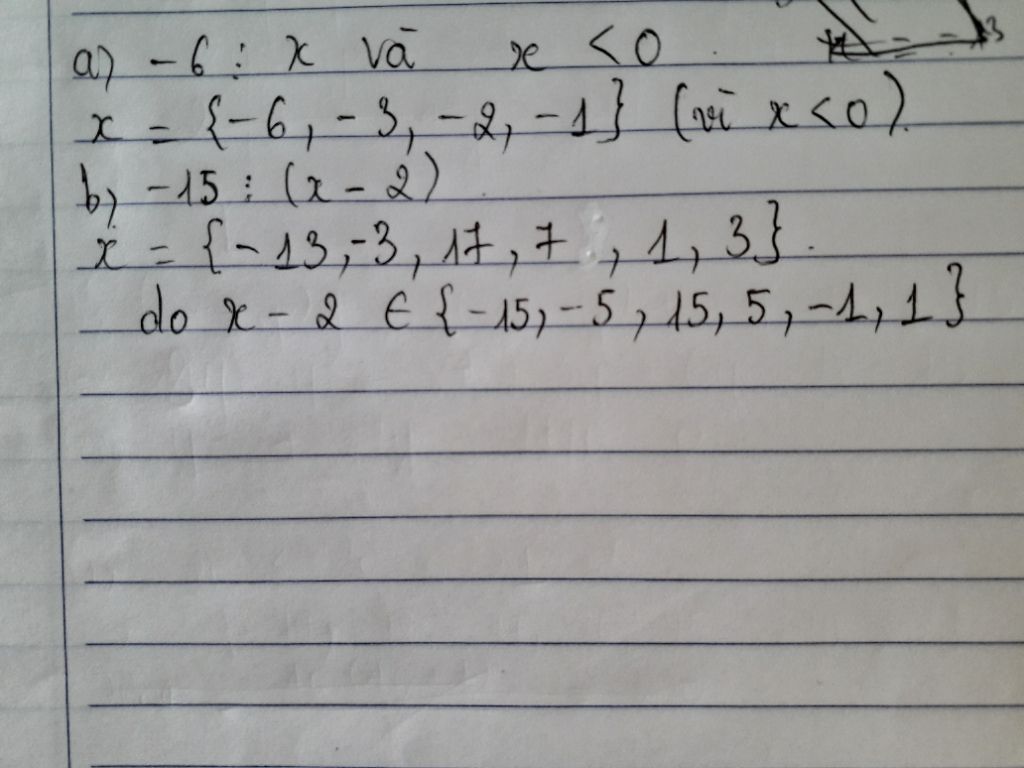 a) -6 ⋮ x và x < 0
x = {-6, -3, -2, -1} (vì x < 0).
b) -15 ⋮ (x - 2)
x = {-13, -3, 17, 7, 1, 3}.
do x - 2 ∈ {-15, -5, 15, 5, -1, 1}